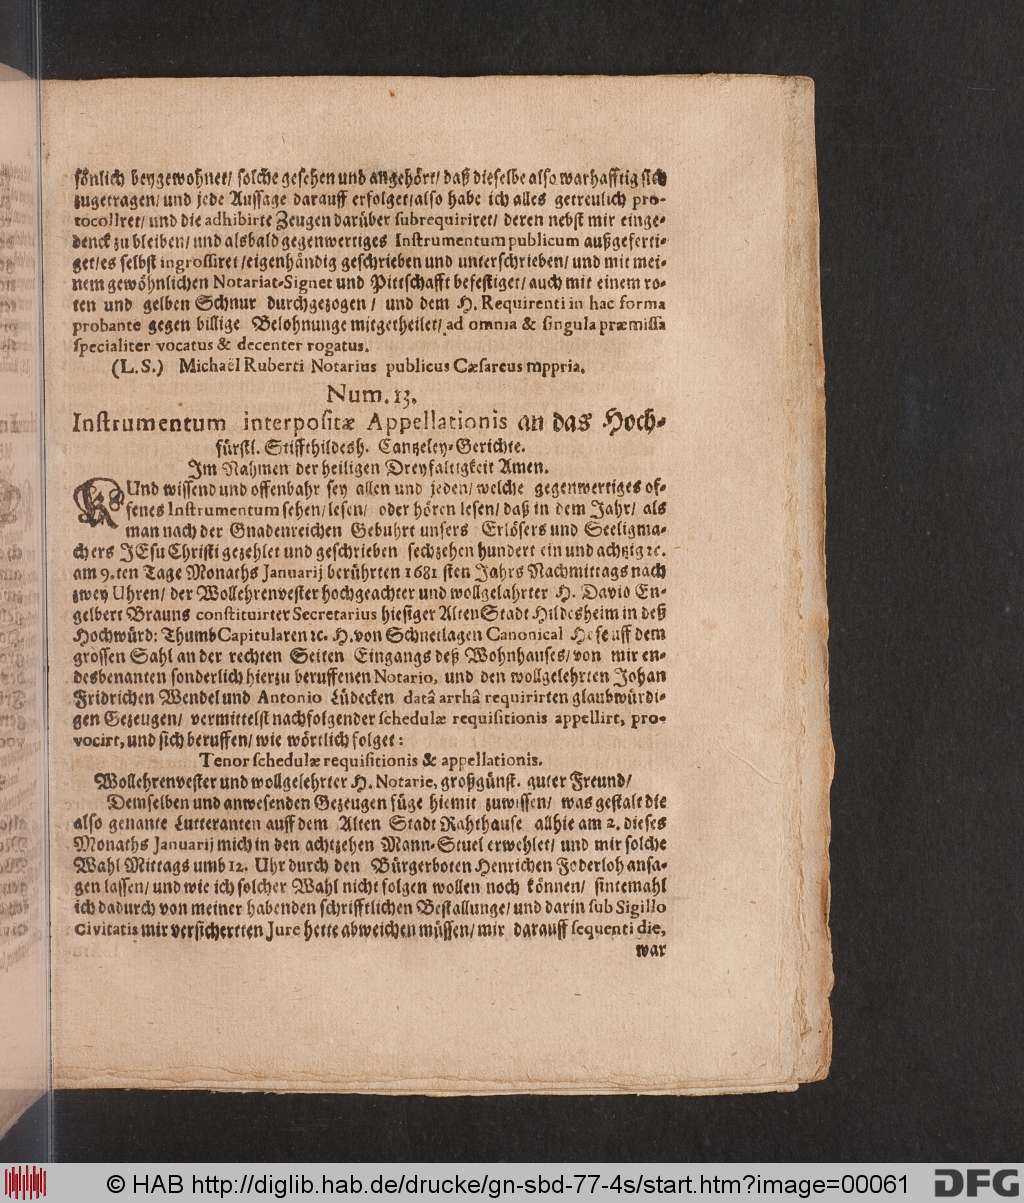 sönlich beygewohnet/ solche gesehen und angehört/ daß dieselbe also warhafftig sich
zugetragen/ und jede Aussage darauff erfolget/also habe ich alles getreulich pro-
tocolliret/ und die adhibirte Zeugen darüber subrequiriret/ deren nebst mir einge-
denck zu bleiben/ und alsbald gegenwertiges Instrumentum publicum außgeferti-
get/es selbst ingrossiret /eigenhändig geschrieben und unterschrieben/ und mit mei-
nem gewöhnlichen Notariat-Signet und Pittschafft befestiget/ auch mit einem ro-
ten und gelben Schnur durchgezogen / und dem H. Requirenti in hac forma
probante gegen billige Belohnunge mitgetheilet/ ad omnia & singula præmissa
specialiter vocatus & decenter rogatus.
(L.S.) Michaël Ruberti Notarius publicus Cæsareus mppria.
Num. 13.
Instrumentum interpositæ Appellationis an das Hoch-
fürstl. Stiffthildesh. Cantzeley-Gerichte.
Im Nahmen der heiligen Dreyfaltigkeit Amen.
KUnd wissend und offenbahr sey allen und jeden/ welche gegenwertiges of-
fenes Instrumentum sehen/ lesen/ oder hören lesen/ daß in dem Jahr/ als
man nach der Gnadenreichen Gebuhrt unsers Erlösers und Seeligma-
chers JEsu Christi gezehlet und geschrieben sechzehen hundert ein und achtzig ꝛc.
am 9.ten Tage Monaths Januarij berührten 1681 sten Jahrs Nachmittags nach
zwey Uhren/ der Wollehrenvester hochgeachter und wollgelahrter H. David En-
gelbert Brauns constituirter Secretarius hiesiger Alten Stadt Hildesheim in deß
Hochwürd: Thumb Capitularen ꝛc. H. von Schnetlagen Canonical Hofe uff dem
grossen Sahl an der rechten Seiten Eingangs deß Wohnhauses/ von mir en-
desbenanten sonderlich hierzu beruffenen Notario, und den wollgelehrten Johan
Fridrichen Wendel und Antonio Lüdecken datâ arrhâ requirirten glaubwürdi-
gen Gezeugen/ vermittelst nachfolgender schedulæ requisitionis appellirt, pro-
vocirt, und sich beruffen/ wie wörtlich folget:
Tenor schedulæ requisitionis & appellationis.
Wollehrenvester und wollgelehrter H. Notarie, großgünst. guter Freund/
Demselben und anwesenden Gezeugen füge hiemit zuwissen/ was gestalt die
also genante Lutteranten auff dem Alten Stadt Rahthause allhie am 2. dieses
Monaths Januarij mich in den achtzehen Mann-Stuel erwehlet/ und mir solche
Wahl Mittags umb 12. Uhr durch den Bürgerboten Henrichen Foderloh ansa-
gen lassen/ und wie ich solcher Wahl nicht folgen wollen noch können/ sintemahl
ich dadurch von meiner habenden schrifftlichen Bestallunge/ und darin sub Sigillo
Civitatis mir versichertten Jure hette abweichen müssen/ mir darauff sequenti die,
war
© HAB http://diglib.hab.de/drucke/gn-sbd-77-4s/start.htm?image=00061
DFG